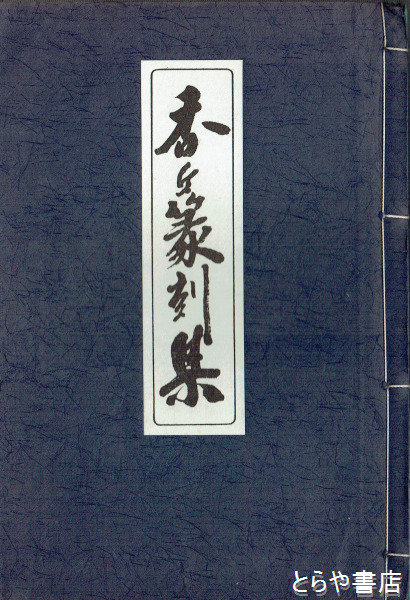 香丘篆刻集
とらや書店